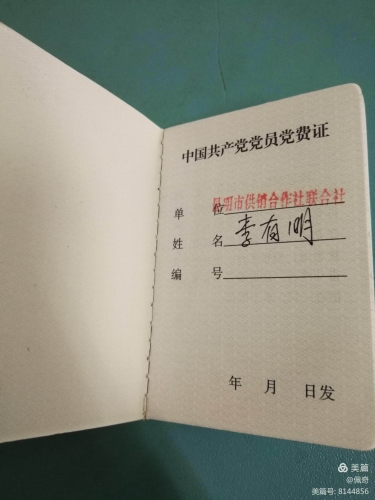 中国共产党党员党费证
单 位 昆明市供销合作社联合社
姓 名 李有明
编 号
年 月 日发
美篇
@佩奇
美篇号: 8144856